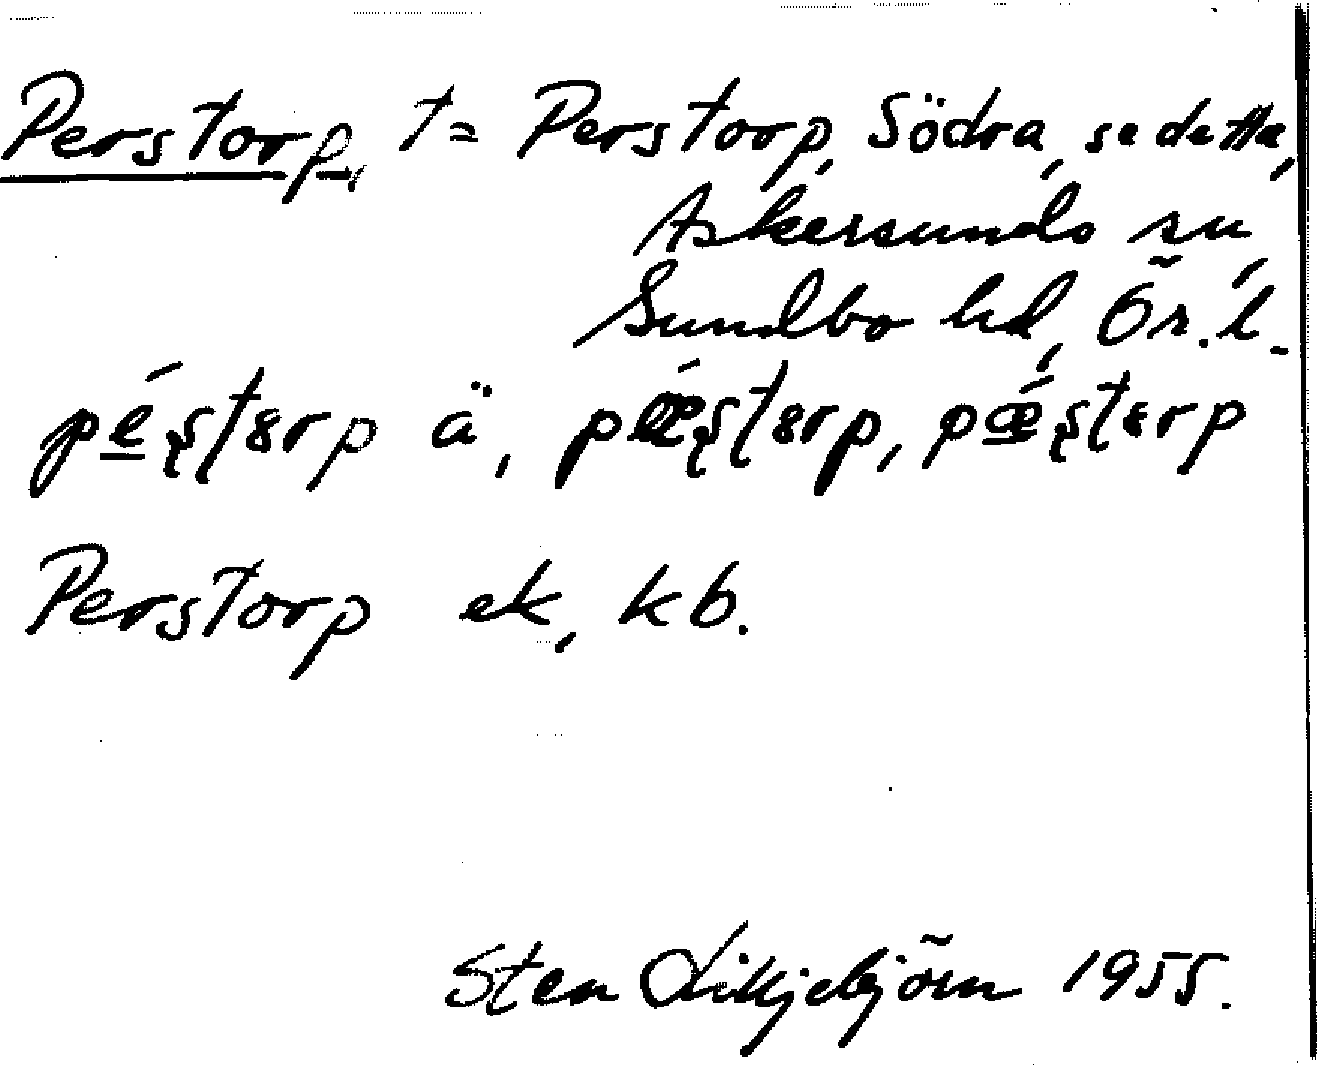 Perstorp, t = Perstorp, Södra, se detta,
Askersunds sn,
Sundbo hd, Ör. l.
pé̲ştɞrp ä, pǽştɞrp, pǽ̲ştɞrp
Perstorp ek, kb.
Sten Liljebjörn 1955.